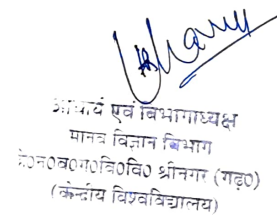 आचार्य एवं विभागाध्यक्ष
मानव विज्ञान विभाग
हे०न०ब०ग०वि०वि० श्रीनगर (गढ़०)
(केन्द्रीय विश्वविद्यालय)